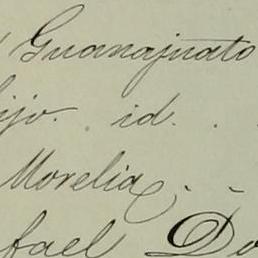 Guanajuato
ijo. id. .
Morelia. -
fael Do